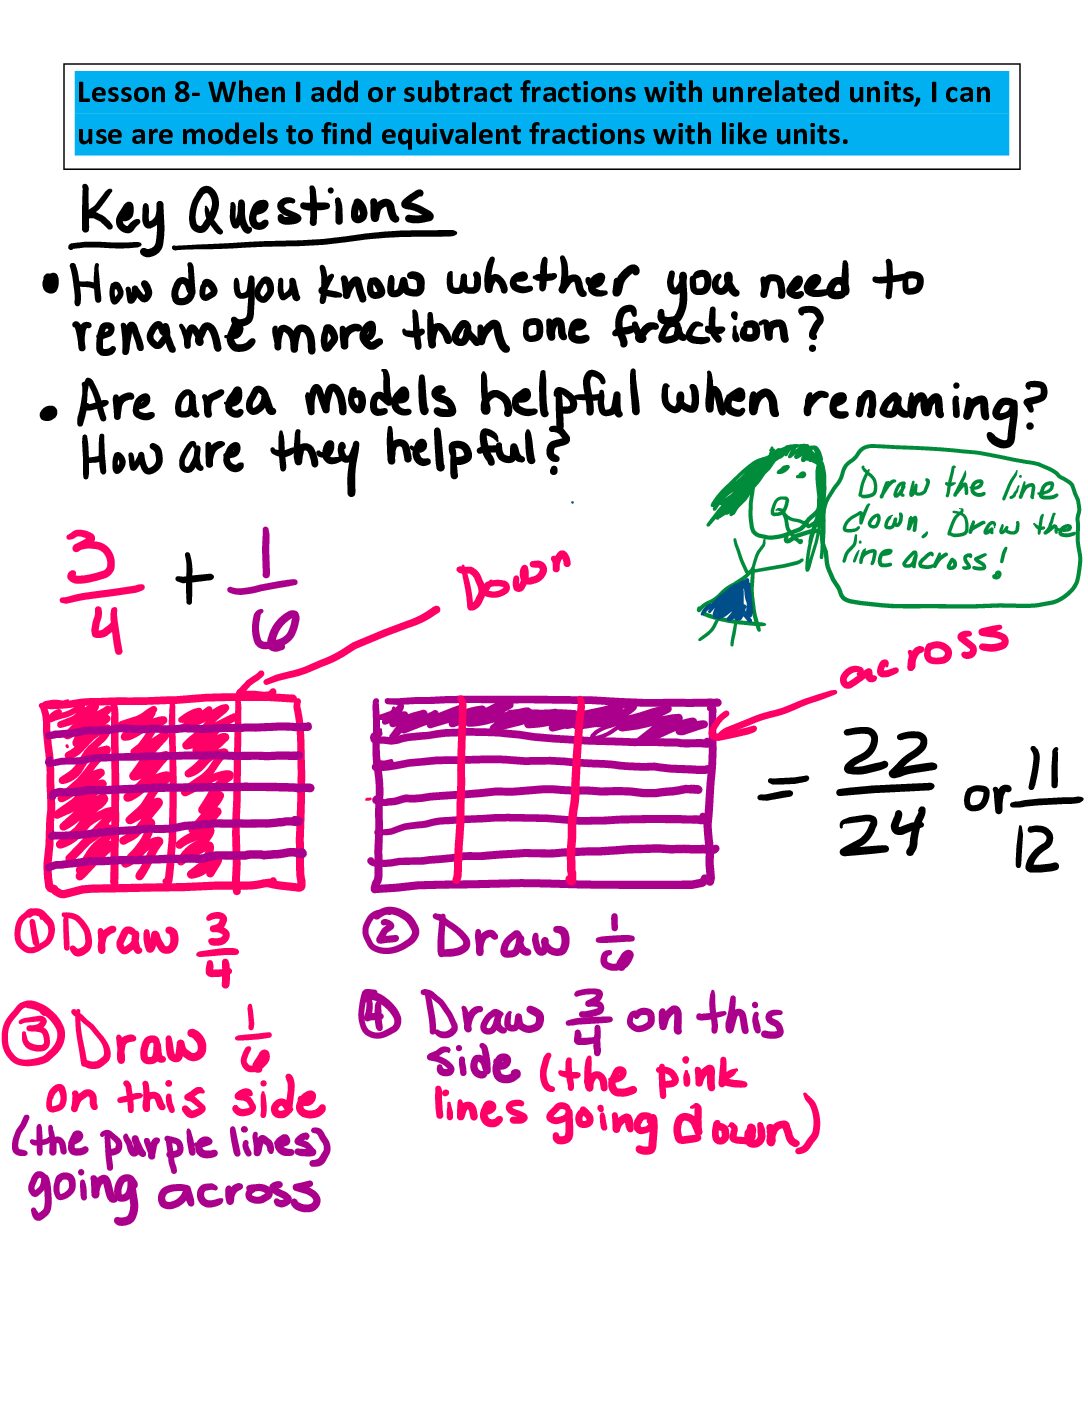 Lesson 8- When I add or subtract fractions with unrelated units, I can
use are models to find equivalent fractions with like units.
Key Questions
• How do you know whether you need to
rename more than one fraction?
• Are area models helpful when renaming?
How are they helpful?
Draw the line
down, Draw the
line across!
3/4 + 1/6
Down
across
= 22/24 or 11/12
① Draw 3/4
② Draw 1/6
③ Draw 1/6
on this side
(the purple lines)
going across
④ Draw 3/4 on this
side (the pink
lines going down)